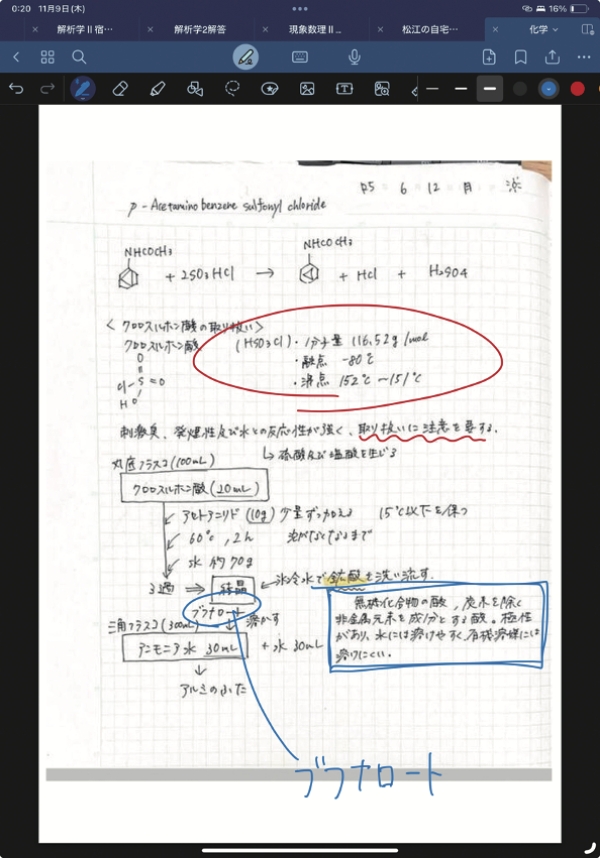 0:20 11月9日(木)
16%
解析学Ⅱ宿…
解析学2解答
現象数理Ⅱ…
松江の自宅…
化学
p5 6 12 月
p-Acetamino benzene sulfonyl chloride
NHCOCH3
NHCOCH3
+ 2SO3HCl → + HCl + H2SO4
<クロロスルホン酸の取り扱い>
クロロスルホン酸 (HSO3Cl)・分子量 116.52g/mol
・融点 -80℃
・沸点 152℃~151℃
O
Cl-S=O
HO
刺激臭、発煙性及び水との反応性が強く、取り扱いに注意を要する。
↳硫酸及び塩酸を生じる
丸底フラスコ(100mL)
クロロスルホン酸(20mL)
アセトアニリド(10g)少量ずつ加える 15℃以下を保つ
60℃, 2h 泡がなくなるまで
水 約70g
ろ過 ⇒ 結晶 ← 氷冷水で鉱酸を洗い流す.
ブフナロート
溶かす
三角フラスコ(300mL)
アンモニア水 30mL + 水 30mL
↓
アルミのふた
無機化合物の酸,炭素を除く
非金属元素を成分とする酸。極性
があり、水には溶けやすく、有機溶媒には
溶けにくい.
ブフナロート